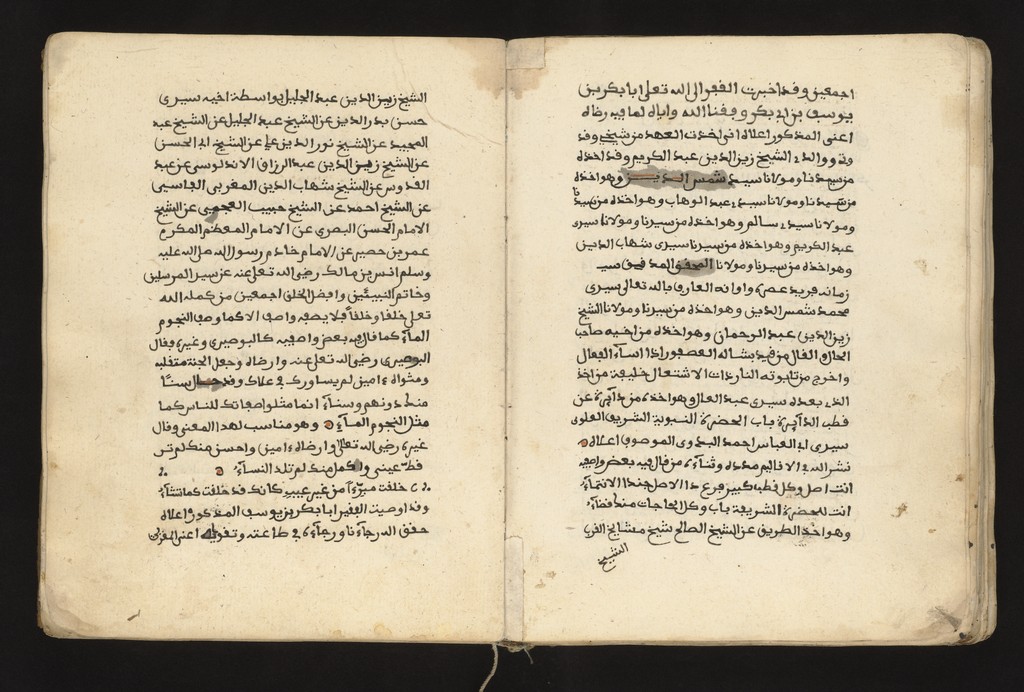 اجمعين وقد اخبرت الفقير الى الله تعلى ابا بكر بن
يوسف بن ابي بكر وفقنا الله واياه لما فيه رضاه
اعنى المذكور اعلاه انى اخذت العهد من شيخي وقد
ووالدي الشيخ زين الدين عبد الكريم وقد اخذه
من سيدنا ومولانا سيدي شمس الدين وهو اخذه
من سيدنا ومولانا سيدي عبد الوهاب وهو اخذه من سيدنا
ومولانا سيدي سالم وهو اخذه من سيدنا ومولانا سيدى
عبد الكريم وهو اخذه من سيدنا سيدى شهاب الدين
وهو اخذه من سيدنا ومولانا المحقق المدقق سيد
زمانه فريد عصره واوانه العارف بالله تعالى سيدى
محمد شمس الدين وهو اخذه من سيدنا ومولانا الشيخ
زين الدين عبد الرحمان وهو اخذه من اخيه صاحب
الحال والقال من قد بشاله العصفور اذا اسآء الفعال
واخرج من تابوته النار ذات الاشتعال خليفة من اخذ
الذي بعده سيدى عبد العال وهو اخذه من دآئرة عن
قطب الدآئرة باب الحضرة النبوية الشريف العلوى
سيدى ابي العباس احمد البدوى الموصوف اعلاه
نشر الله في الاقاليم مدده وثنآءه من قال فيه بعض واصفيه
انت اصل وكل قطب كبير فرع ذا الاصل عندنا الانتمآء
انت للحضرة الشريفة باب وكل الحاجات منك قضآء
وهو اخذ الطريق عن الشيخ الصالح شيخ مشايخ القرى
الشيخ
الشيخ زين الدين عبد الجليل بواسطة اخيه سيدى
حسن بدر الدين عن الشيخ عبد الجليل عن الشيخ عبد
المجيد عن الشيخ نور الدين علي عن الشيخ ابي الحسن
عن الشيخ زين الدين عبد الرزاق الاندلوسى عن عبد
القدوس عن الشيخ شهاب الدين المغربى الفاسى
عن الشيخ احمد عن الشيخ حبيب العجمي عن الشيخ
الامام الحسن البصرى عن الامام المعظم المكرم
عمر بن حصير عن الامام خادم رسول الله صلى الله عليه
وسلم انس بن مالك رضى الله تعلى عنه عن سيد المرسلين
وخاتم النبيئين وافضل الخلق اجمعين من كمله الله
تعلى خلقا وخلقا فلا يصفه واصف الا كما وصف النجوم
المآء كما قال فيه بعض واصفيه كالبوصيرى وغيره فقال
البوصيرى رضى الله تعلى عنه وارضاه وجعل الجنة متقلبه
ومثواه ءامين لم يساووك في علاك وقد حال سنًا
منك دونهم وسنآء انما مثلوا صفاتك للناس كما
مثل النجوم المآء وهو مناسب لهذا المعنى وقال
غيره رضى الله تعلى وارضاه ءامين واحسن منك لم تر
قط عينى واكمل منك لم تلد النسآء
خلقت مبرءا من غير عيب كانك قد خلقت كما تشآء
وقد اوصيت الفقير ابا بكر بن يوسف المذكور اعلاه
حقق الله رجآءنا ورجآءه في طاعته وتقويه اعنى